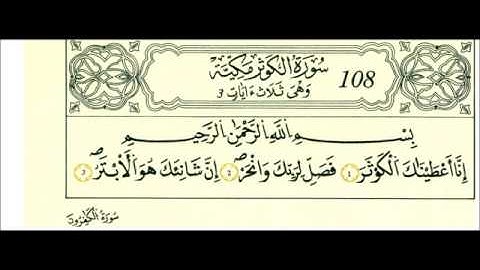 سُورَةُ الْكَوْثَرِ مَكِّيَّةٌ 108
وَهِيَ ثَلَاثُ ءَايَاتٍ 3
بِسْمِ اللَّهِ الرَّحْمَٰنِ الرَّحِيمِ
إِنَّا أَعْطَيْنَاكَ الْكَوْثَرَ ١ فَصَلِّ لِرَبِّكَ وَانْحَرْ ٢ إِنَّ شَانِئَكَ هُوَ الْأَبْتَرُ ٣
سُورَةُ الْكَافِرُونَ